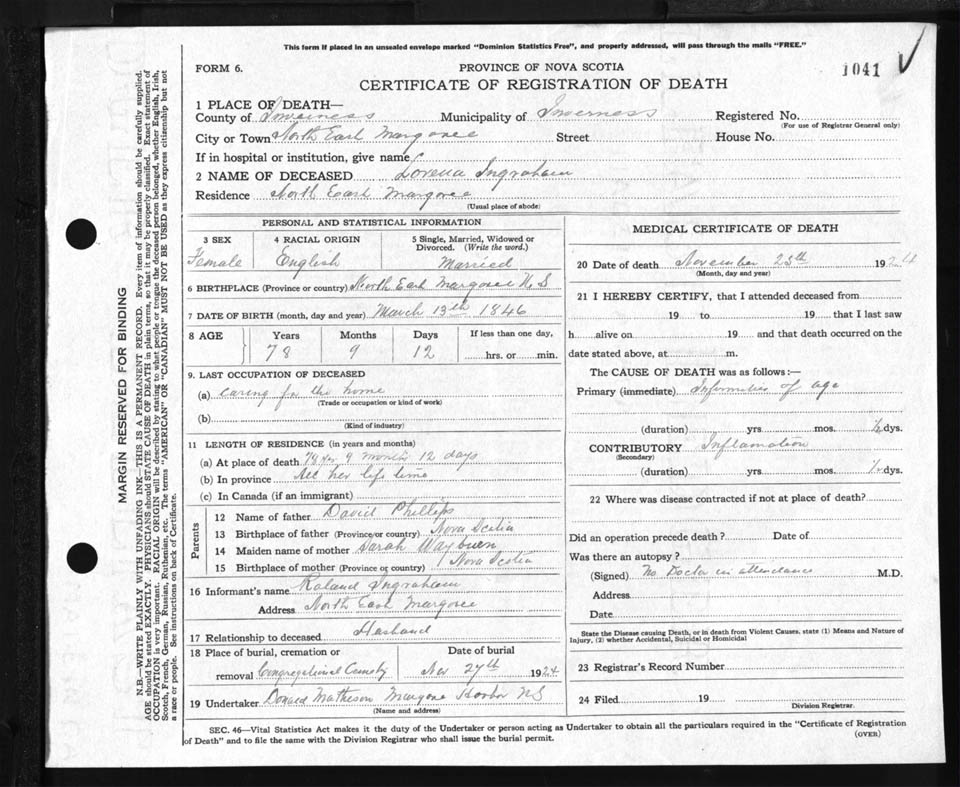 This form if placed in an unsealed envelope marked "Dominion Statistics Free", and properly addressed, will pass through the mails "FREE."
FORM 6.
PROVINCE OF NOVA SCOTIA
1041
CERTIFICATE OF REGISTRATION OF DEATH
1 PLACE OF DEATH—
County of Inverness Municipality of Inverness Registered No.
(For use of Registrar General only)
City or Town North East Margaree Street House No.
If in hospital or institution, give name
2 NAME OF DECEASED Lorena Ingraham
Residence North East Margaree
(Usual place of abode)
PERSONAL AND STATISTICAL INFORMATION
3 SEX 4 RACIAL ORIGIN 5 Single, Married, Widowed or Divorced. (Write the word.)
Female English Married
6 BIRTHPLACE (Province or country) North East Margaree N S
7 DATE OF BIRTH (month, day and year) March 13th 1846
8 AGE Years Months Days If less than one day,
78 9 12 hrs. or min.
9. LAST OCCUPATION OF DECEASED
(a) Caring for the home
(Trade or occupation or kind of work)
(b)
(Kind of industry)
11 LENGTH OF RESIDENCE (in years and months)
(a) At place of death 78 yrs 9 months 12 days
(b) In province All her life time
(c) In Canada (if an immigrant)
Parents
12 Name of father David Phillips
13 Birthplace of father (Province or country) Nova Scotia
14 Maiden name of mother Sarah
15 Birthplace of mother (Province or country) Nova Scotia
16 Informant's name Roland Ingraham
Address North East Margaree
17 Relationship to deceased Husband
18 Place of burial, cremation or Date of burial
removal Congregational Cemetry Nov 27th 1924
19 Undertaker Donald Matheson Margaree Harbor NS
(Name and address)
MEDICAL CERTIFICATE OF DEATH
20 Date of death November 25th 1924
(Month, day and year)
21 I HEREBY CERTIFY, that I attended deceased from
19 to 19 that I last saw
h alive on 19 and that death occurred on the
date stated above, at m.
The CAUSE OF DEATH was as follows:—
Primary (immediate) Infirmities of age
(duration) yrs. mos. ½ dys.
CONTRIBUTORY Inflamation
(Secondary)
(duration) yrs. mos. dys.
22 Where was disease contracted if not at place of death?
Did an operation precede death? Date of
Was there an autopsy?
(Signed) No Doctor in attendance M.D.
Address
Date
State the Disease causing Death, or in death from Violent Causes, state (1) Means and Nature of
Injury, (2) whether Accidental, Suicidal or Homicidal
23 Registrar's Record Number
24 Filed 19
Division Registrar.
SEC. 46—Vital Statistics Act makes it the duty of the Undertaker or person acting as Undertaker to obtain all the particulars required in the "Certificate of Registration
of Death" and to file the same with the Division Registrar who shall issue the burial permit.
(OVER)
MARGIN RESERVED FOR BINDING
N.B.—WRITE PLAINLY WITH UNFADING INK—THIS IS A PERMANENT RECORD. Every item of information should be carefully supplied.
AGE should be stated EXACTLY. PHYSICIANS should STATE CAUSE OF DEATH in plain terms, so that it may be properly classified. Exact statement of
OCCUPATION is very important. RACIAL ORIGIN will be described by stating to what people or tongue the deceased person belonged, whether English, Irish,
Scotch, French, German, Russian, Ruthenian, etc. The terms "AMERICAN" OR "CANADIAN" MUST NOT BE USED as they express citizenship but not
a race or people. See instructions on back of Certificate.